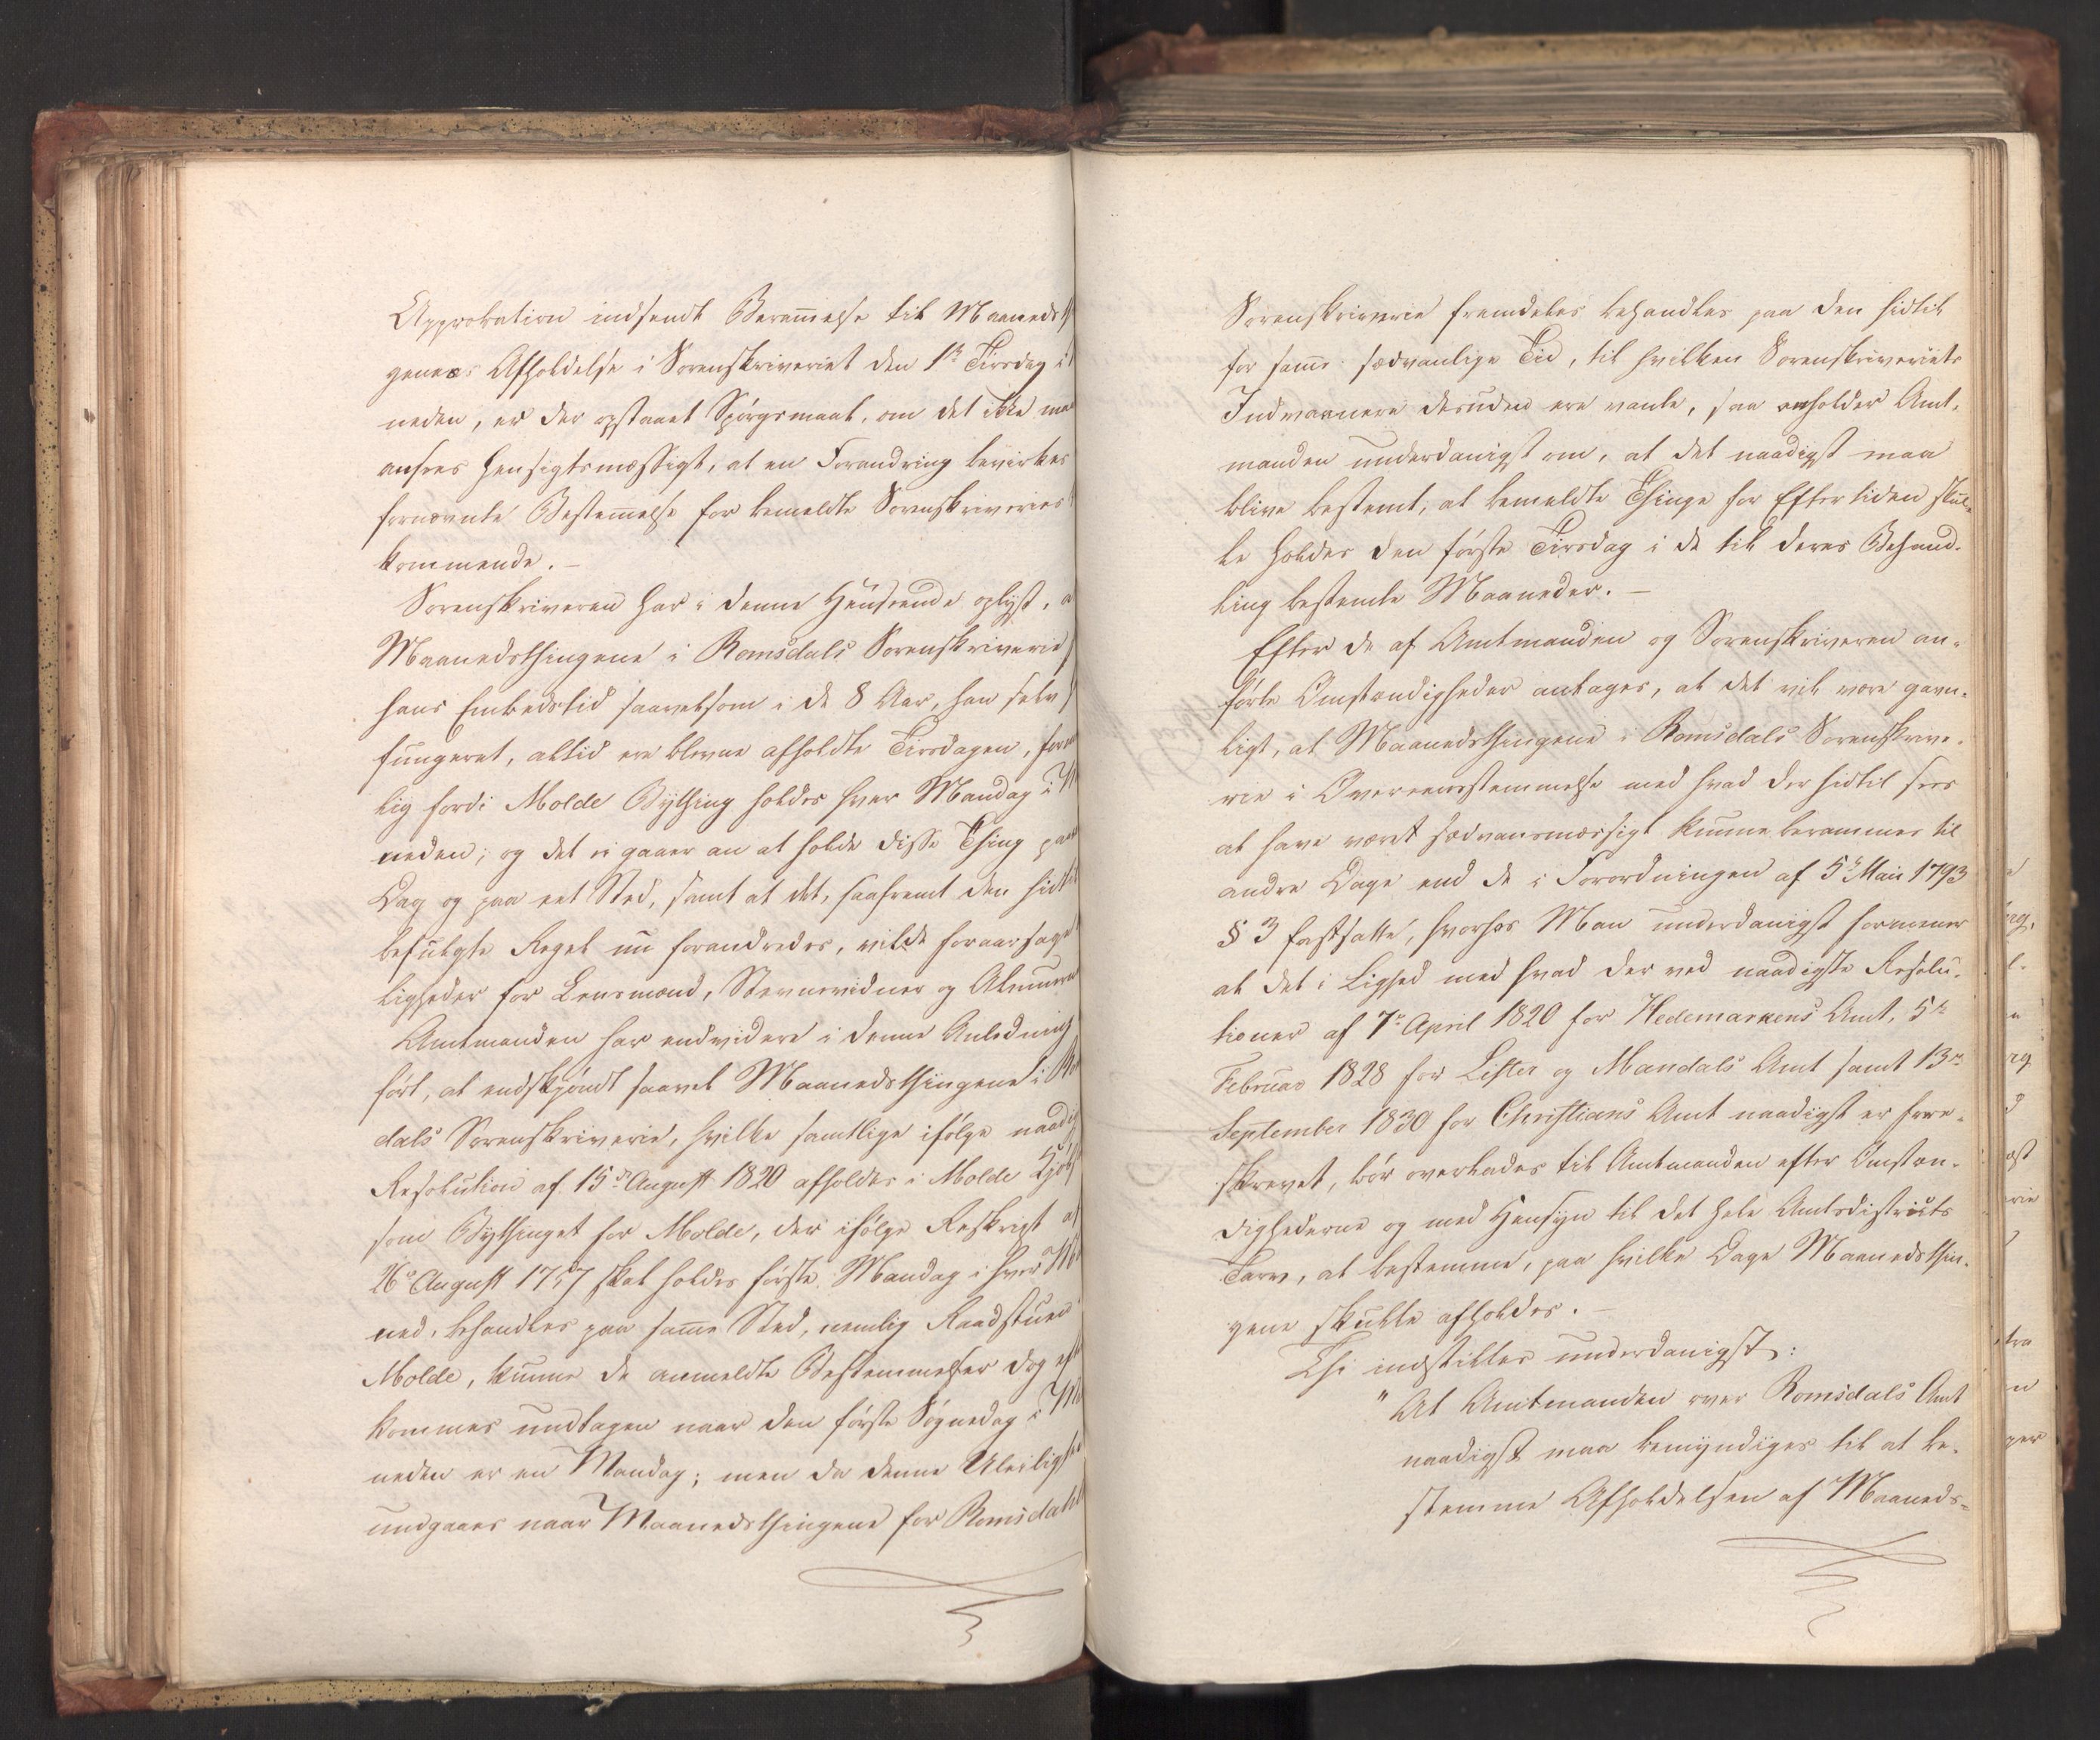 Approbation indsendt Berammelse til Maaneds
genes Afholdelse i Sorenskriveriet den 1ste Tirsdag i
neden, er der opstaaet Spørgsmaal, om det ikke ma
ansees hensigtsmæssigt, at en Forandring bevirkes
fornævnte Bestemmelse for bemeldte Sorenskriveries
kommende. –
Sorenskriveren har i denne Henseende oplyst, a
Maanedsthingene i Romsdals Sorenskriverie
hans Embedstid saavelsom i de 8 Aar, han selv
fungeret, altid ere blevne afholdte Tirsdagen,
lig fordi Molde Bything holdes hver Mandag i
neden; og det ei gaaer an at holde disse Thing paa
Dag og paa eet Sted, samt at det, saafremt den hidtil
befulgte Regel nu forandredes, vilde foraarsage
ligheder for Lensmænd, Stevnevidner og Almuen
Amtmanden har endvidere i denne Anledning
ført, at endskjøndt saavel Maanedsthingene i Ro
dals Sorenskriverie, hvilke samtlige ifølge naadig
Resolution af 15de August 1820 afholdes i Molde Kjøb
som Bythinget for Molde, der ifølge Reskript af
26de August 1757 skal holdes første Mandag i hver
ned, behandles paa samme Sted, nemlig Raadstuen
Molde, kunne de anmeldte Bestemmelser dog
kommes undtagen naar den første Søgnedag i
neden er en Mandag; men da denne Uleilighed
undgaaes naar Maanedsthingene for Romsdals
Sorenskriverie fremdeles behandles paa den hidtil
for samme sædvanlige Tid, til hvilken Sorenskriveriets
Indvaanere desuden ere vante, saa anholder Amt-
manden underdanigst om, at det naadigst maa
blive bestemt, at bemeldte Thinge for Eftertiden skul-
le holdes den første Tirsdag i de til deres Behand-
ling bestemte Maaneder. –
Efter de af Amtmanden og Sorenskriveren an-
førte Omstændigheder antages, at det vil være gavn-
ligt, at Maanedsthingene i Romsdals Sorenskrive-
rie i Overeensstemmelse med hvad der hidtil sees
at have været sædvansmæssigt kunne berammes til
andre Dage end de i Forordningen af 5te Mai 1793
§ 3 fastsatte, hvorhos Man underdanigst formener
at det i Lighed med hvad der ved naadigste Resolu-
tioner af 7de April 1820 for Hedemarkens Amt, 5te
Februar 1828 for Lister og Mandals Amt samt 13de
September 1830 for Christians Amt naadigst er fore-
skrevet, bør overlades til Amtmanden efter Omstæn-
dighederne og med Hensyn til det hele Amtsdistricts
Tarv, at bestemme, paa hvilke Dage Maanedsthin-
gene skulle afholdes. –
Thi indstilles underdanigst:
"At Amtmanden over Romsdals Amt
naadigst maa bemyndiges til at be-
stemme Afholdelsen af Maaneds-